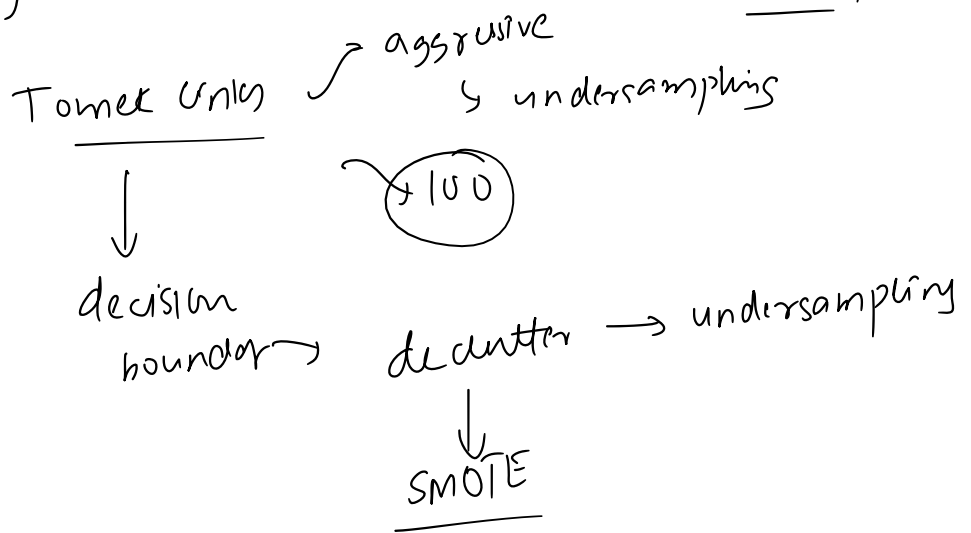 Tomek Links → aggrusive
↳ undersampling
→ 100
↓
decision
boundary → declutter → undersampling
↓
SMOTE